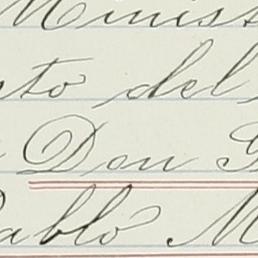 Minist
sto del
Don
Pablo M